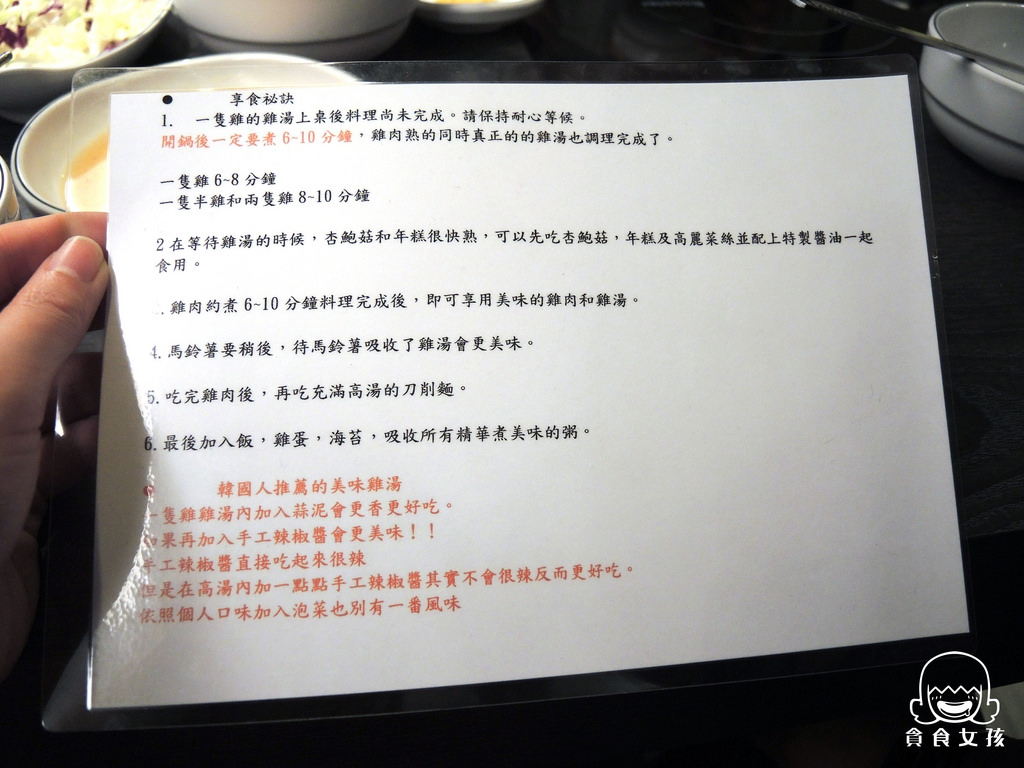 ● 享食祕訣
1. 一隻雞的雞湯上桌後料理尚未完成。請保持耐心等候。
開鍋後一定要煮 6~10 分鐘，雞肉熟的同時真正的的雞湯也調理完成了。
一隻雞 6~8 分鐘
一隻半雞和兩隻雞 8~10 分鐘
2 在等待雞湯的時候，杏鮑菇和年糕很快熟，可以先吃杏鮑菇，年糕及高麗菜絲並配上特製醬油一起
食用。
. 雞肉約煮 6~10 分鐘料理完成後，即可享用美味的雞肉和雞湯。
4. 馬鈴薯要稍後，待馬鈴薯吸收了雞湯會更美味。
5. 吃完雞肉後，再吃充滿高湯的刀削麵。
6. 最後加入飯，雞蛋，海苔，吸收所有精華煮美味的粥。
● 韓國人推薦的美味雞湯
一隻雞雞湯內加入蒜泥會更香更好吃。
如果再加入手工辣椒醬會更美味！！
手工辣椒醬直接吃起來很辣
但是在高湯內加一點點手工辣椒醬其實不會很辣反而更好吃。
依照個人口味加入泡菜也別有一番風味
貪食女孩